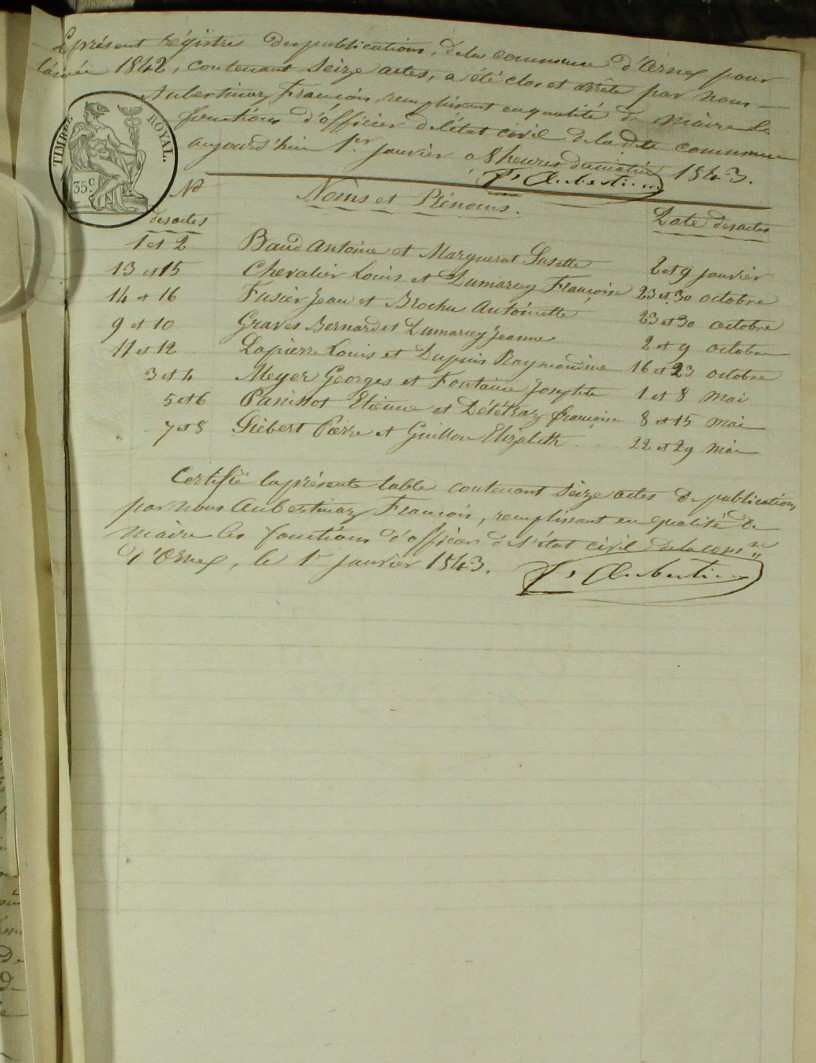 Le présent régistre des publications, de la commune d'Ornex pour
l'année 1842, contenant seize actes, a été clos et arrêté par nous
Aubertinaz François, remplissant en qualité de Maire les
fonctions d'officier de l'état civil de la dite commune
aujourd'hui 1er janvier à 8 heures du matin 1843.
Fs Aubertinaz
TIMBRE ROYAL.
35c
No
des actes
Noms et Prénoms.
Date des actes
1 et 2 Baud Antoine et Marguerat Susette 2 et 9 janvier
13 et 15 Chevalier Louis et Dumarey Françoise 23 et 30 octobre
14 et 16 Fusier Jean et Brochu Antoinette 23 et 30 octobre
9 et 10 Graves Bernard et Dumarey Jeanne 2 et 9 octobre
11 et 12 Lapierre Louis et Dupuis Raymondine 16 et 23 octobre
3 et 4 Meyer Georges et Fontaine Josephte 1 et 8 mai
5 et 6 Panissot Etienne et Dététraz françoise 8 et 15 mai
7 et 8 Siebert Pierre et Guillon Elizabeth 22 et 29 mai
Certifié la présente table contenant seize actes de publication
par nous Aubertinaz François, remplissant en qualité de
maire les fonctions d'officier de l'état civil de la comne
d'Ornex, le 1er janvier 1843.
Fs Aubertinaz